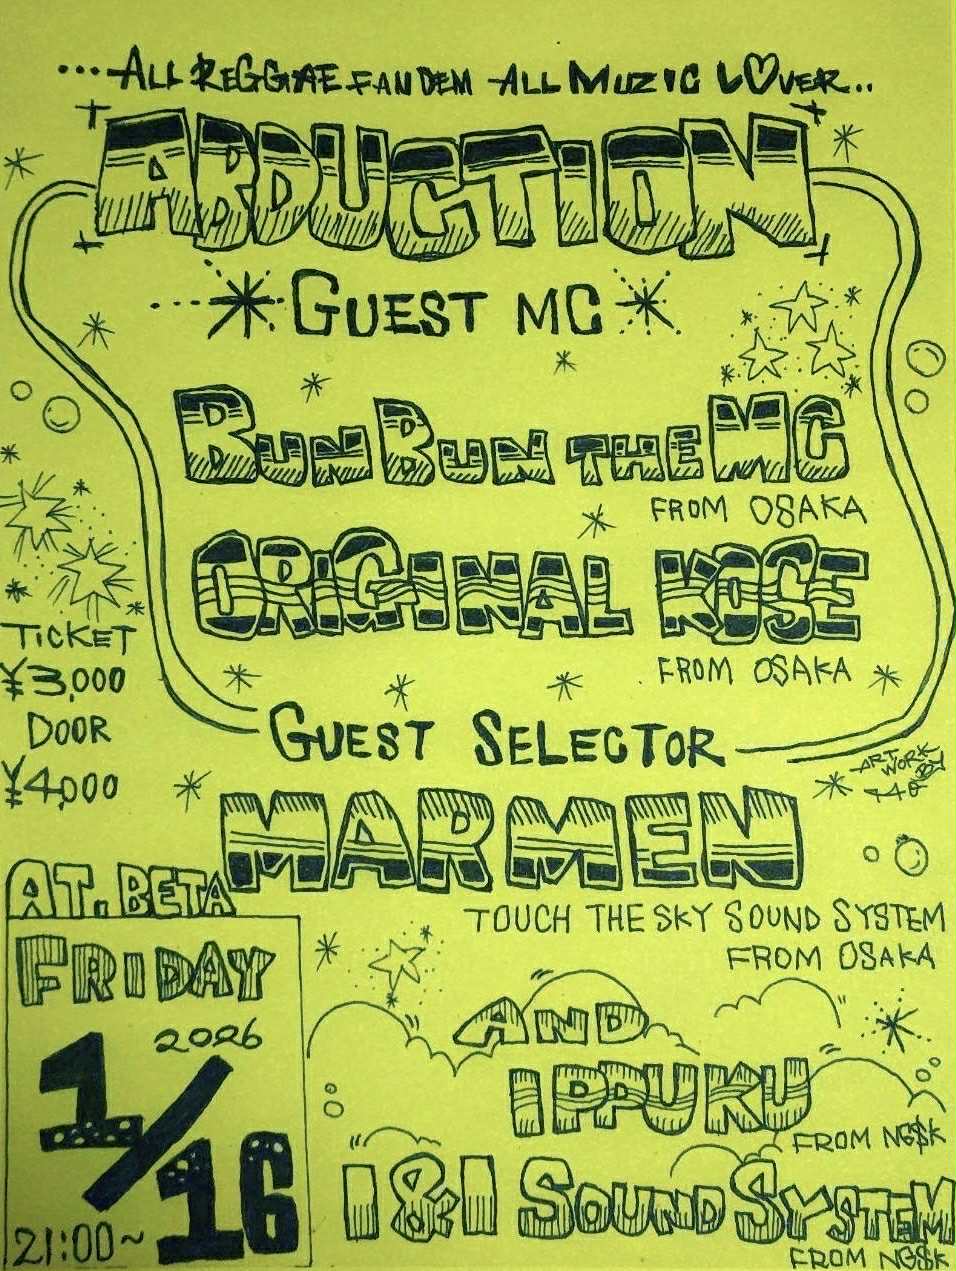 ...ALL REGGAE FAN DEM ALL MUZIC L♡VER..
ABDUCTION
GUEST MC
BUN BUN THE MC
FROM OSAKA
ORIGINAL KOSE
FROM OSAKA
TICKET
¥3,000
DOOR
¥4,000
GUEST SELECTOR
ART WORK
BY
MARMEN
TOUCH THE SKY SOUND SYSTEM
FROM OSAKA
AT. BETA
FRIDAY
2026
1/16
21:00~
AND
IPPUKU
FROM NG$K
I&I SOUND SYSTEM
FROM NG$K